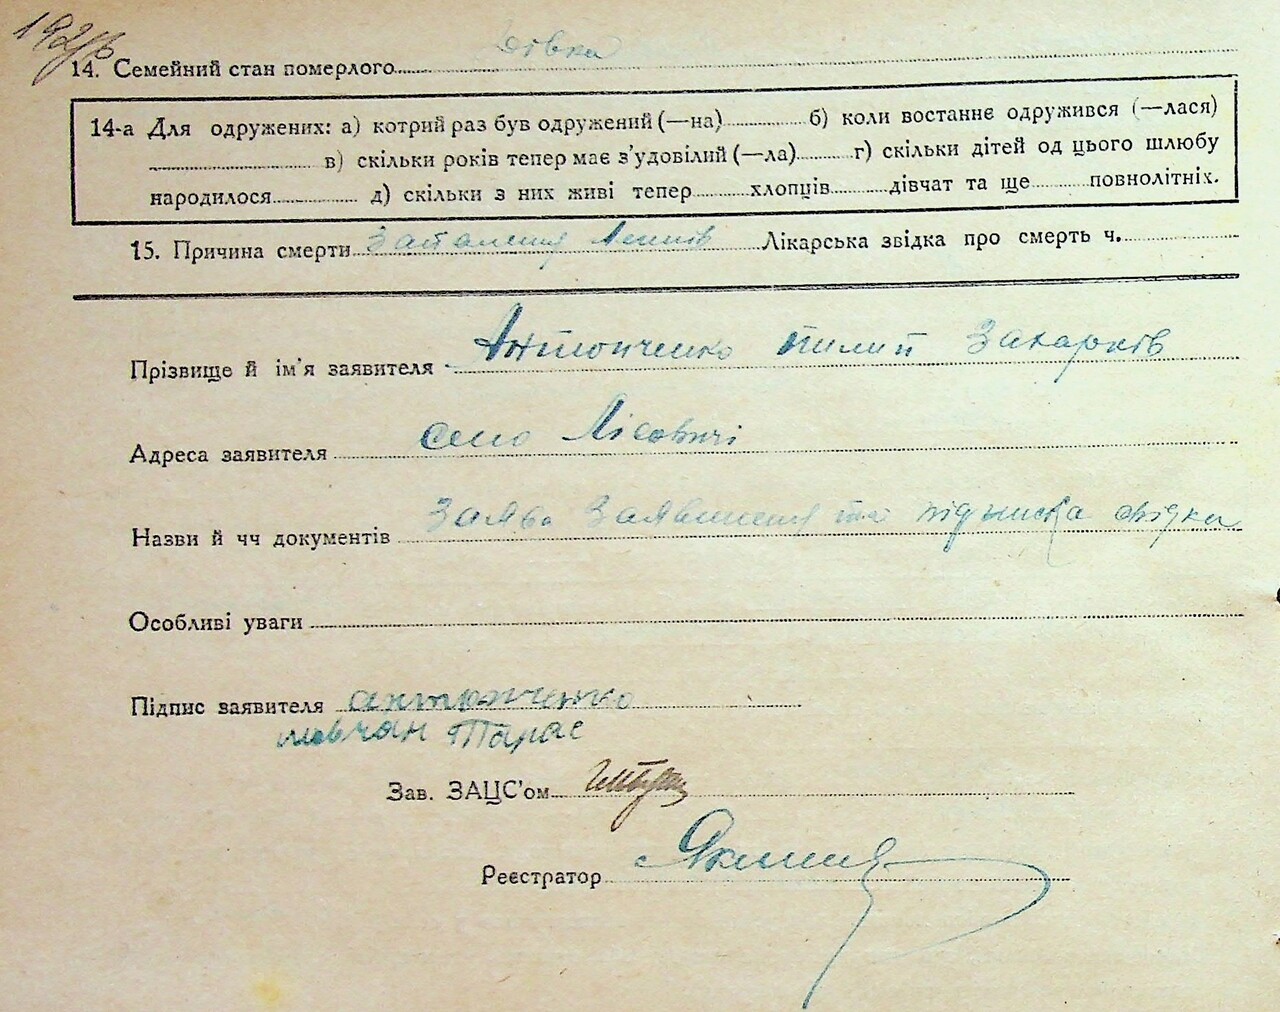 192
14. Семейний стан померлого дівка
14-а Для одружених: а) котрий раз був одружений (—на) б) коли востаннє одружився (—лася)
в) скільки років тепер має з'удовілий (—ла) г) скільки дітей од цього шлюбу
народилося д) скільки з них живі тепер хлопців дівчат та ще повнолітніх.
15. Причина смерти Запалення легнів Лікарська звідка про смерть ч.
Прізвище й ім'я заявителя Антонченко Пилип Захарків
Адреса заявителя село Лісовичі
Назви й чч документів Заява Заявителя та підписка свідка
Особливі уваги
Підпис заявителя антонченко
мовчан Тарас
Зав. ЗАЦС'ом
Реєстратор